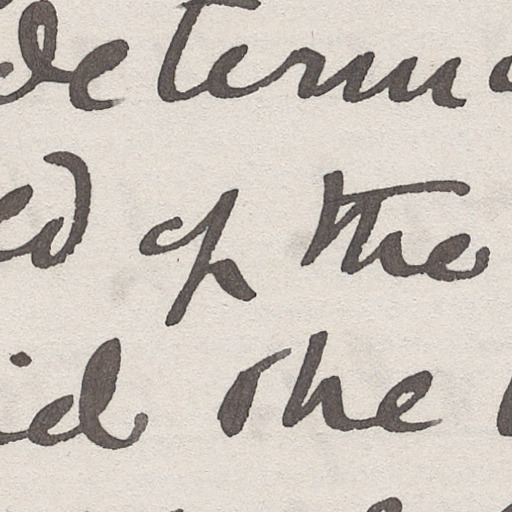 determ
ed of the
id the